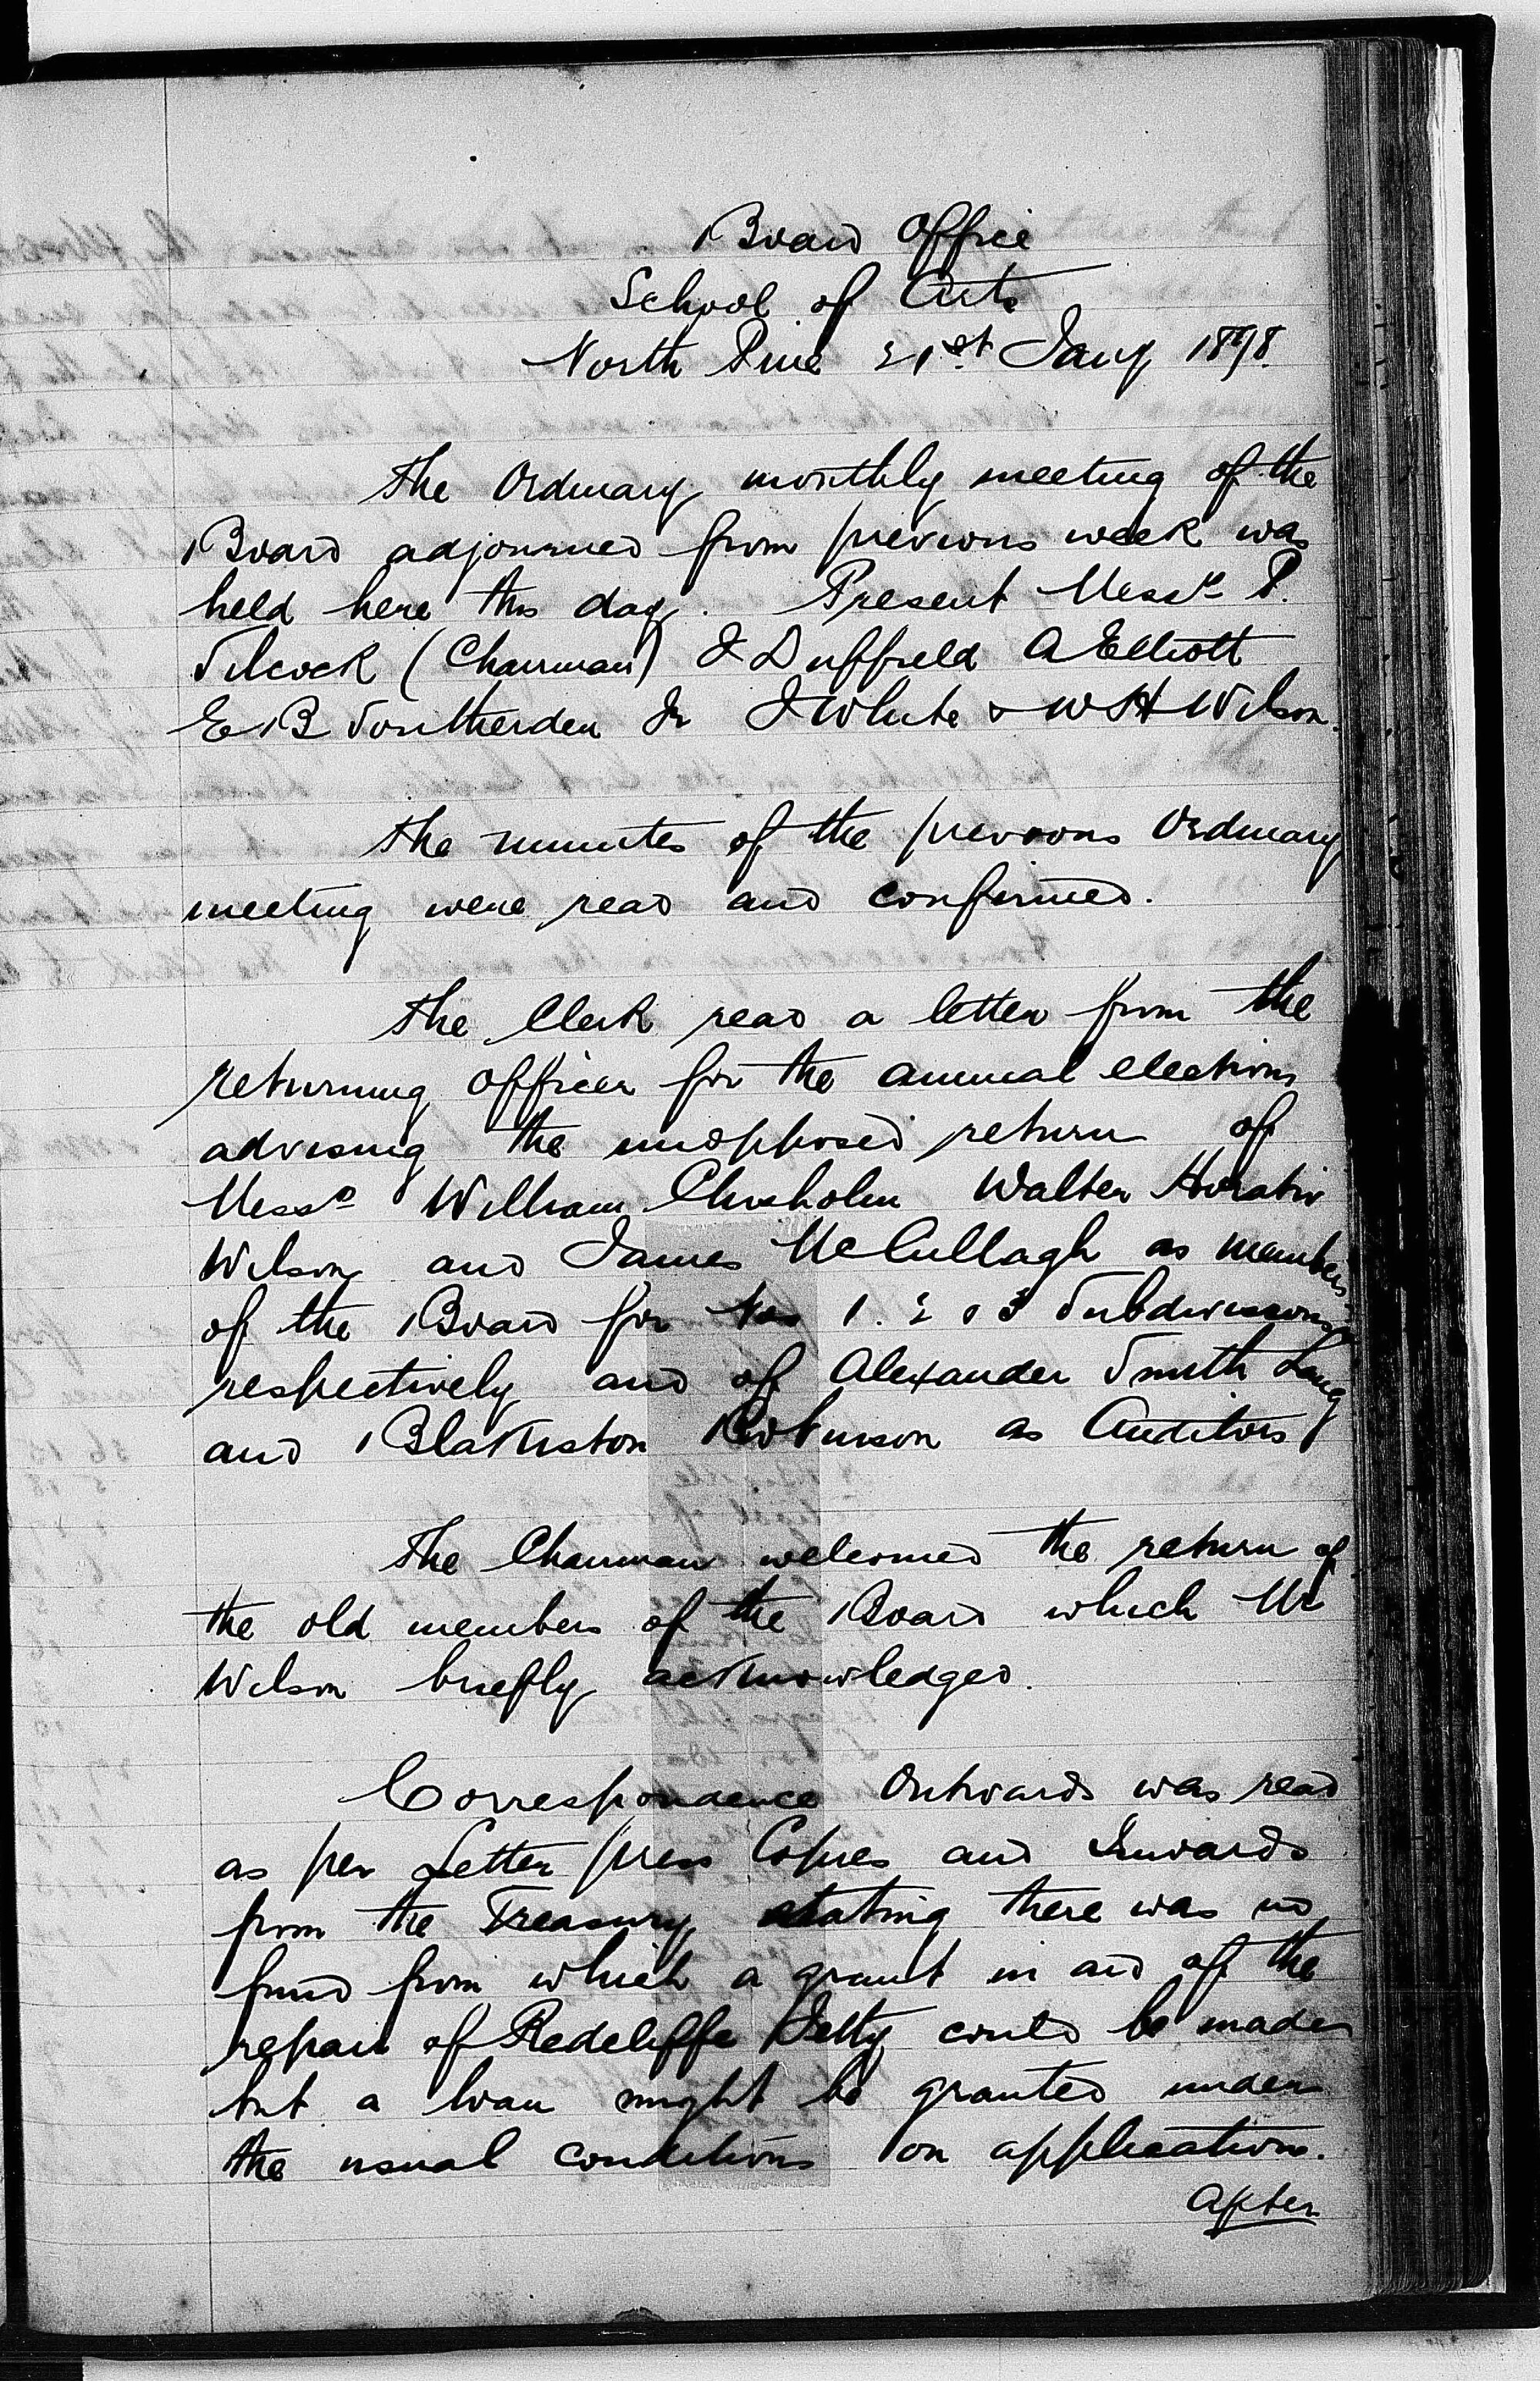 Board Office
School of Arts
North Pine 21st Jany 1898.
The Ordinary monthly meeting of the
Board adjourned from previous week was
held here this day. Present Messrs P.
Silcock (Chairman) J Duffield A Elliott
E B Southerden Jr J White & W H Wilson.
The minutes of the previous Ordinary
meeting were read and confirmed.
The Clerk read a letter from the
returning officer for the annual elections
advising the unopposed return of
Messrs William Chisholm Walter Horatio
Wilson and James McCullagh as members
of the Board for Nos 1. 2 & 3 Subdivisions
respectively and of Alexander Smith Lang
and Blakiston Robinson as Auditors
The Chairman welcomed the return of
the old members of the Board which Mr
Wilson briefly acknowledged.
Correspondence Outwards was read
as per Letter press Copies and Inwards
from the Treasury stating there was no
fund from which a grant in aid of the
repair of Redcliffe Jetty could be made
but a loan might be granted under
the usual conditions on application.
After